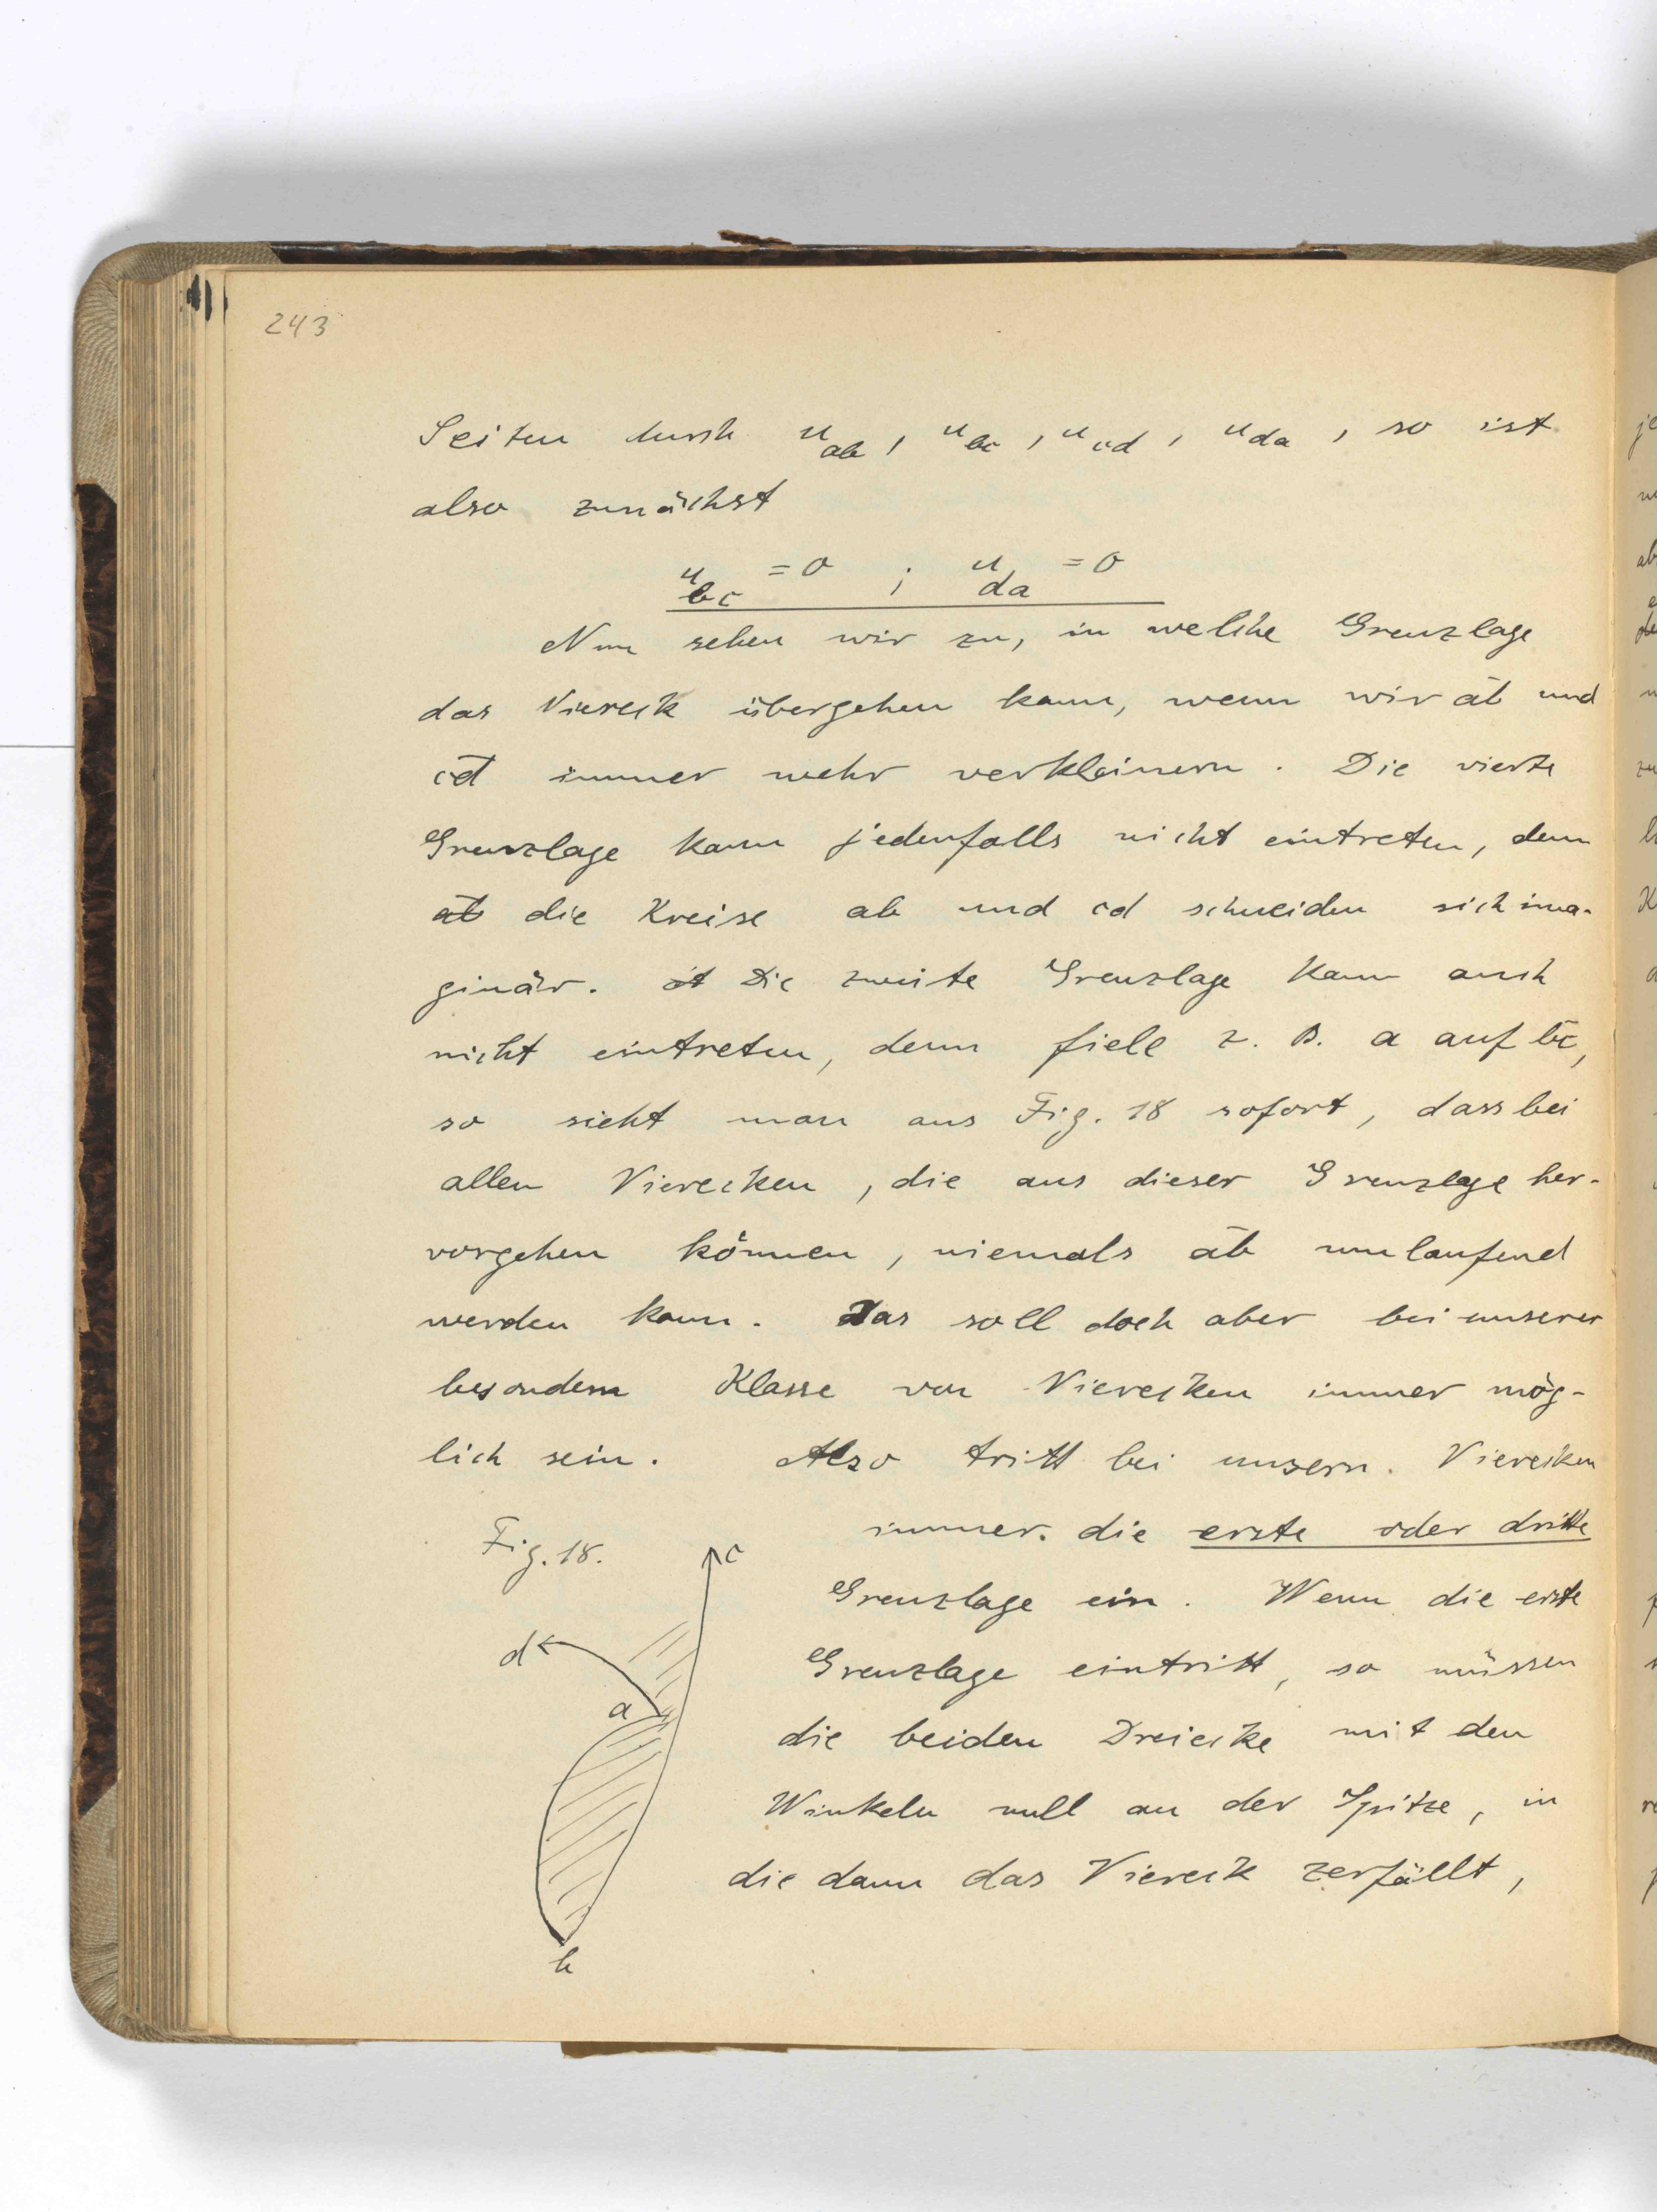 243
Seiten durch u_ab, u_bc, u_cd, u_da, so ist
also zunächst
u_bc = 0 ; u_da = 0
Nun sehen wir zu, in welche Grenzlage
das Viereck übergehen kann, wenn wir a̅b̅ und
c̅d̅ immer mehr verkleinern. Die vierte
Grenzlage kann jedenfalls nicht eintreten, denn
die Kreise ab und cd schneiden sich ima-
ginär. Die zweite Grenzlage kann auch
nicht eintreten, denn fiele z. B. a auf b̅c̅,
so sieht man aus Fig. 18 sofort, dass bei
allen Vierecken, die aus dieser Grenzlage her-
vorgehen können, niemals a̅b̅ umlaufend
werden kann. Das soll doch aber bei unserer
besondern Klasse von Vierecken immer mög-
lich sein. Also tritt bei unsern Vierecken
immer die erste oder dritte
Fig. 18.
c
Grenzlage ein. Wenn die erste
d
Grenzlage eintritt, so müssen
a
die beiden Dreiecke mit den
Winkeln null an der Spitze, in
die dann das Viereck zerfällt,
b